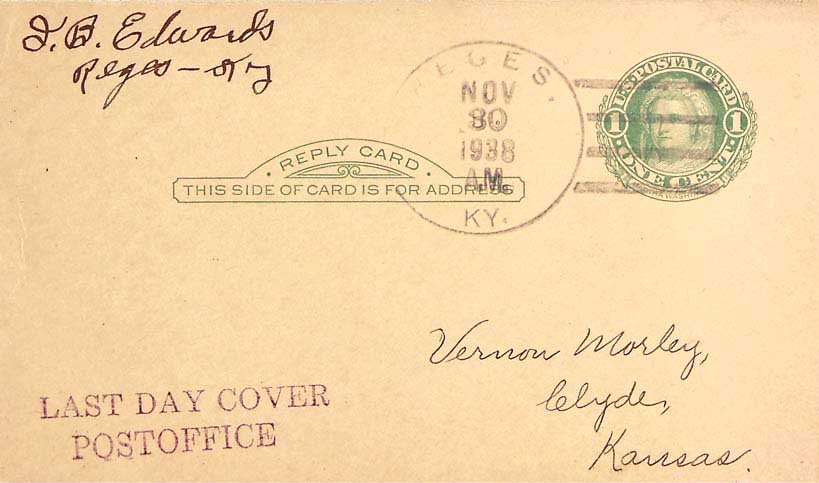 J. B. Edwards
Reges - Ky
REGES,
NOV
30
1938
A.M.
KY.
U.S. POSTAL CARD
1 1
ONE CENT
MARTHA WASHINGTON
REPLY CARD
THIS SIDE OF CARD IS FOR ADDRESS
Vernon Morley,
Clyde,
Kansas.
LAST DAY COVER
POSTOFFICE